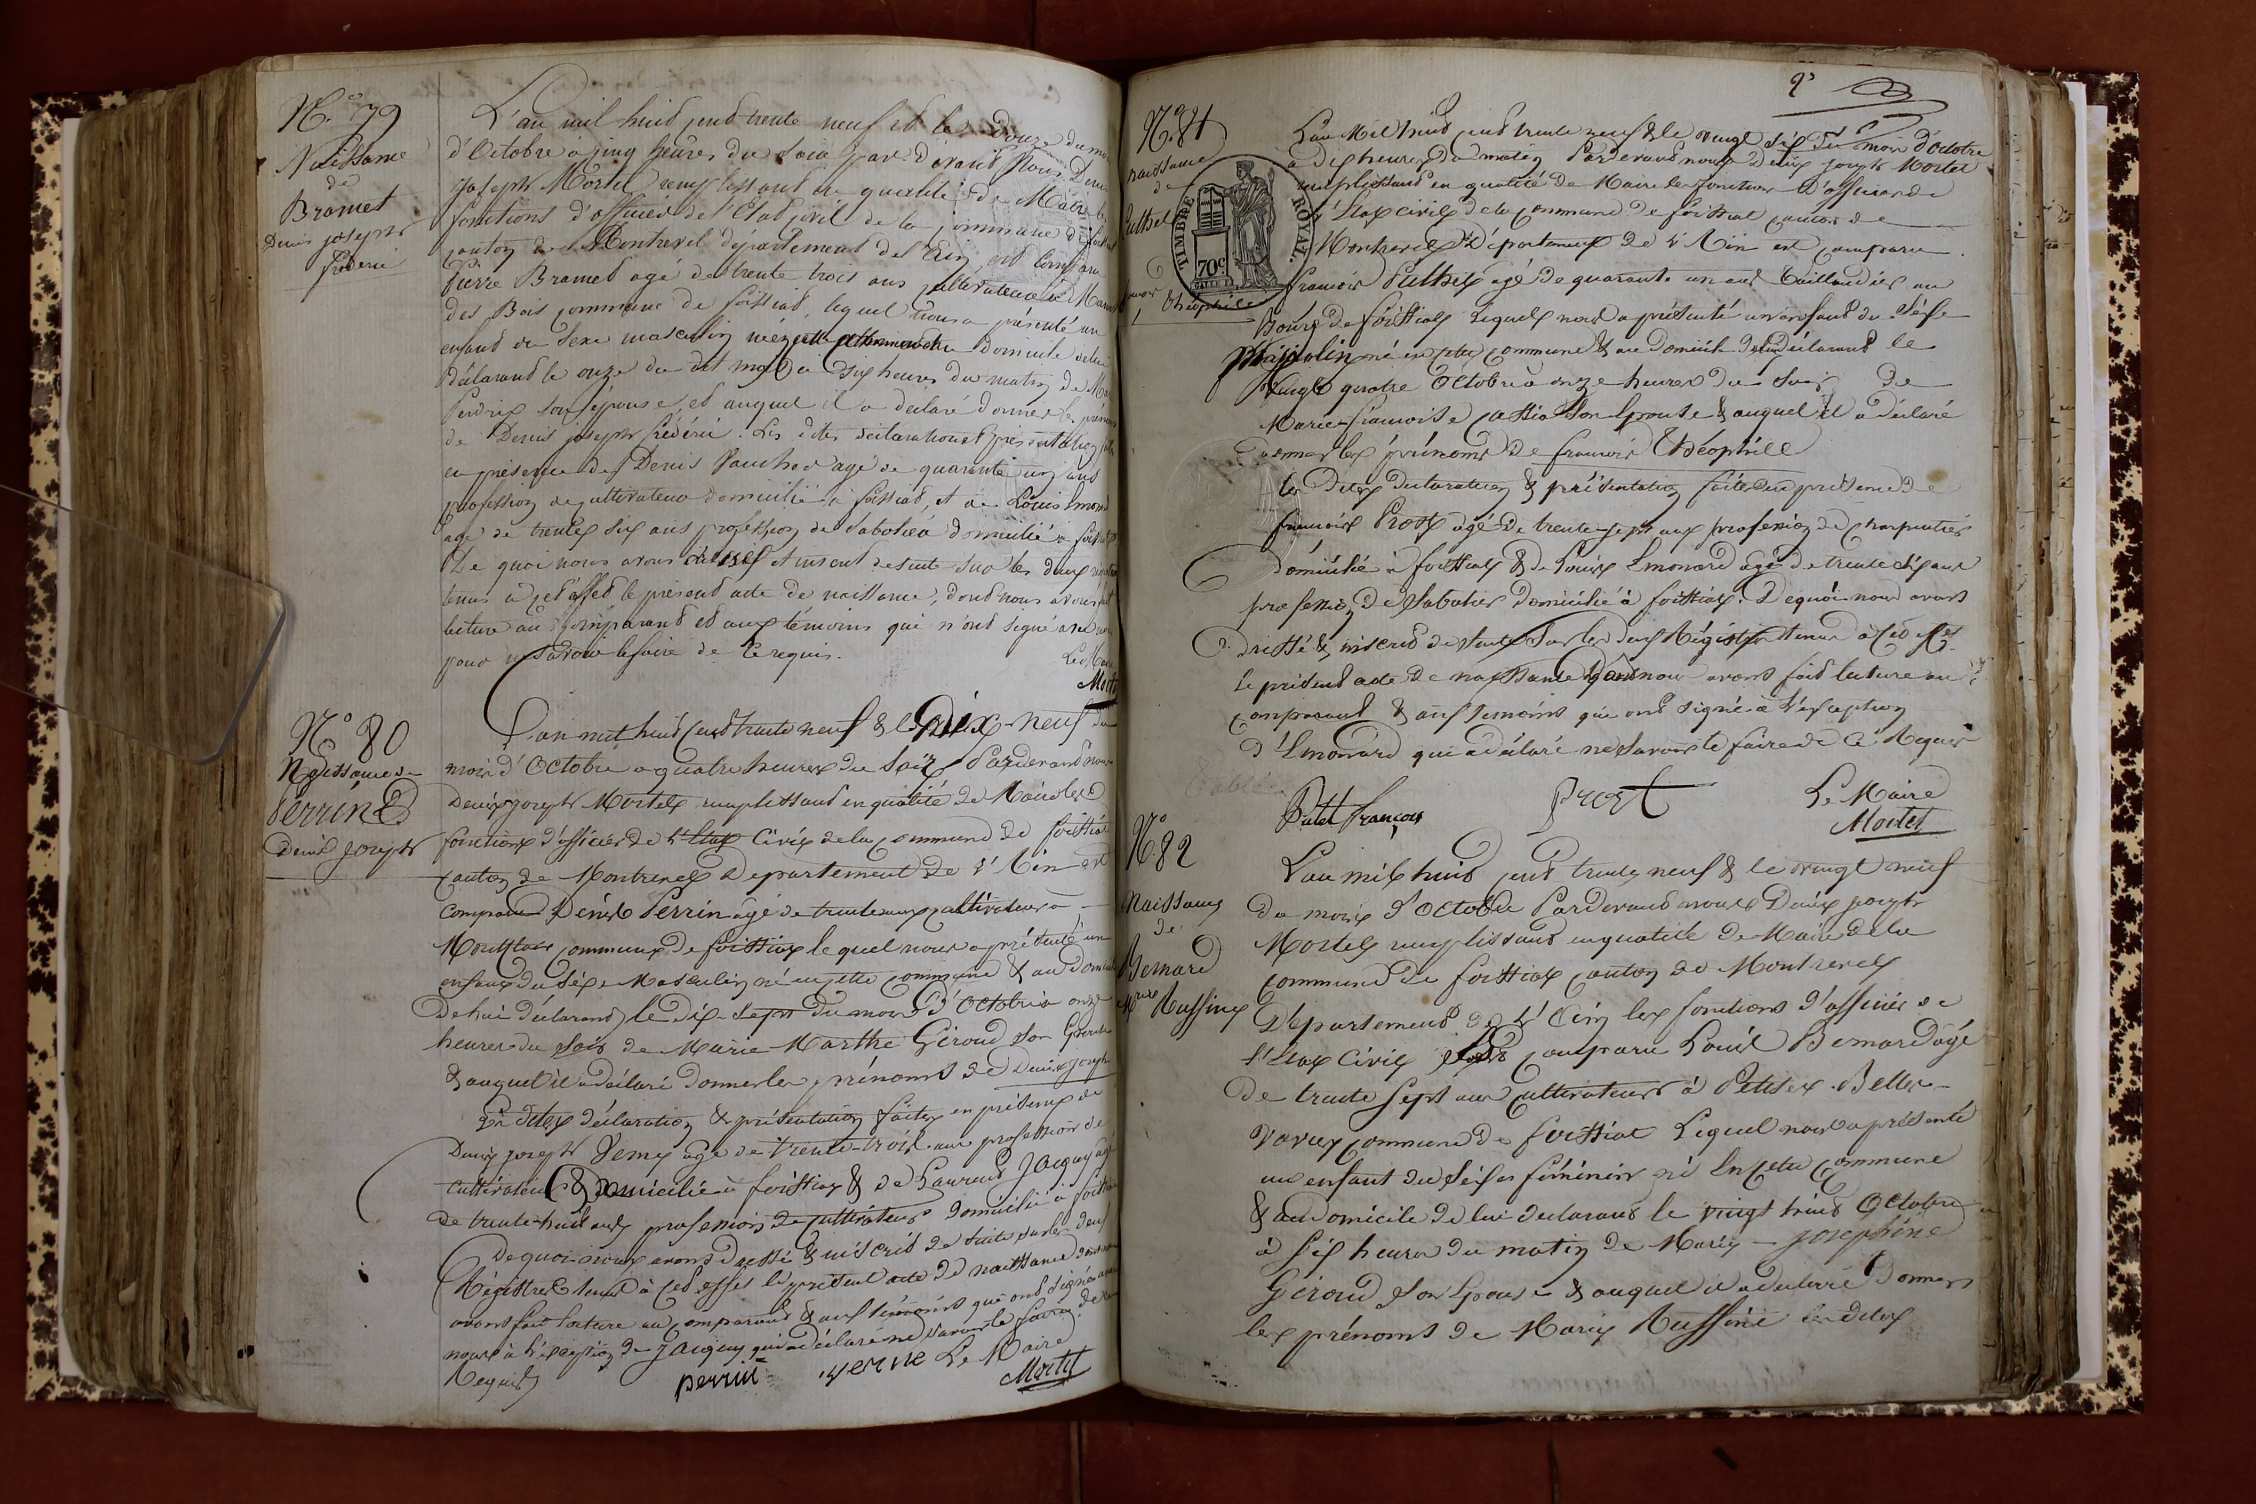 N.° 79
Naissance
de
Bramet
Denis joseph
frédéric
L'an mil huit cent trente neuf et le douze du
d'Octobre a cinq heures du soir par devant Nous Denis
joseph Mortel remplissant en qualité de Maire les
fonctions d'officier de l'Etat civil de la commune de
canton de Montrevel département de l'Ain est comparu
Pierre Bramet agé de trente trois ans cultivateur
des Bois commune de foissiat, lequel nous a présenté un
enfant du sexe masculin né domicile de lui
déclarant le onze du dit mois a dix heures du matin de
Perdrix son epouse et auquel il a déclaré donner les prénoms
de Denis joseph frédéric. Les dites déclaration et présentation
en présence de Denis Vauchod agé de quarante cinq ans
profession de cultivateur domicilié à foissiat, et de Louis
agé de trente six ans profession de sabotier domicilié à foissiat
De quoi nous avons dressé et inscrit de suite sur les deux
tenus à cet effet le présent acte de naissance, dont nous avons
lecture au comparant et aux témoins qui n'ont signé
pour ne savoir le faire de ce requis.
Le Maire
N° 80
Naissance de
Perrin
Denis Joseph
L'an mil huit cent trente neuf & le dix-neuf du
mois d'Octobre a quatre heures du soir Pardevant nous
Denis joseph Mortel remplissant en qualité de Maire les
fonctions d'officier de l'Etat Civil de la commune de foissiat
canton de Montrevel Departement de l'Ain est
comparu Denis Perrin agé de trente ans cultivateur a
commune de foissiat lequel nous a présenté un
enfant du sexe Masculin né en cette commune & au domicile
de lui déclarant le dix-sept du mois d'Octobre a onze
heures du soir de Marie Marthe Giroud son Epouse
& auquel il a déclaré donner les prénoms de Denis Joseph
Les dites déclaration & présentation faites en présence de
Denis joseph agé de trente-trois ans profession de
cultivateur & domicilié à foissiat & de Laurent
de trente huit ans profession de cultivateur domicilié à foissiat
De quoi nous avons dressé & inscrit de suite sur les deux
Régistres tenus à cet effet le présent acte de naissance dont nous
avons fait lecture au comparant & aux témoins qui ont signé avec
nous à l'éxception de qui a déclaré ne savoir le faire de ce
Requis
perrin Le Maire
Mortel
N° 81
naissance
de
françois
théophile
TIMBRE ROYAL
70c
L'an Mil huit cent trente neuf & le vingt six du mois d'Octobre
a dix heures du matin Pardevant nous Denis joseph Mortel
remplissant en qualité de Maire les fonctions d'officier de
l'Etat civil de la commune de foissiat canton de
Montrevel Département de l'Ain est comparu
françois agé de quarante un ans taillandier au
Bourg de foissiat Lequel nous a présenté un enfant du sexe
Masculin né en cette commune & au domicile de lui déclarant le
vingt quatre Octobre à onze heures du soir de
Marie françoise son Epouse & auquel il a déclaré
donner les prénoms de françois théophile
les dites declaration & présentation faites en présence de
françois Prost agé de trente-sept ans profession de charpentier
domicilié à foissiat & de Louis Emonard agé de trente six ans
profession de Sabotier domicilié à foissiat. De quoi nous avons
dressé & inscrit de suite sur les deux Régistres tenus a cet effet
Le présent acte de naissance dont nous avons fait lecture au
comparant & aux temoins qui ont signé à l'éxception
d'Emonard qui a déclaré ne savoir le faire de ce Requis
françois Prost Le Maire
Mortel
N° 82
Naissance
de
Bernard
L'an mil huit cent trente neuf & le vingt neuf
du mois d'Octobre Pardevant nous Denis joseph
Mortel remplissant en qualité de Maire de la
commune de foissiat canton de Montrevel
Département de l'Ain les fonctions d'officier de
l'Etat Civil est comparu Louis Bernard agé
de trente sept ans cultivateur à
commune de foissiat Lequel nous a présenté
un enfant du sexe féminin né en cette commune
& au domicile de lui declarant le vingt huit Octobre
à six heures du matin de Marie-josephine
Giroud son Epouse & auquel il a déclaré donner
les prénoms de Marie les dites